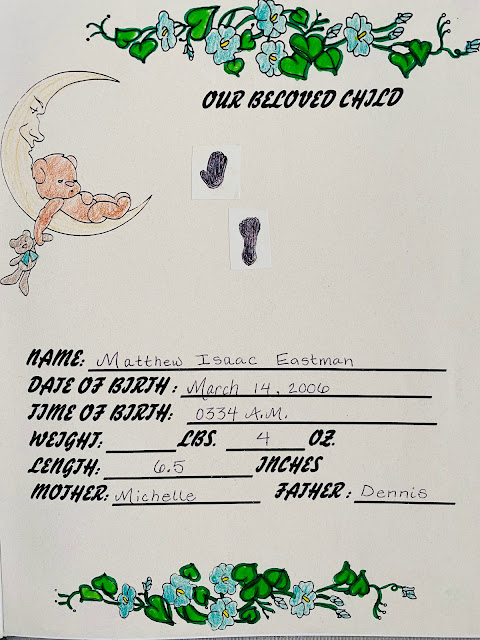 OUR BELOVED CHILD
NAME: Matthew Isaac Eastman
DATE OF BIRTH: March 14, 2006
TIME OF BIRTH: 0334 A.M.
WEIGHT: LBS. 4 OZ.
LENGTH: 6.5 INCHES
MOTHER: Michelle FATHER: Dennis